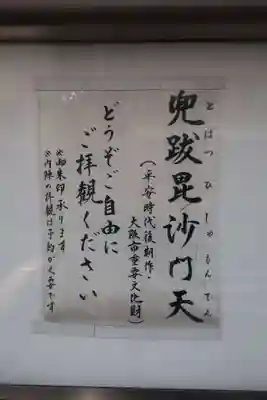 兜跋毘沙門天
とばつびしゃもんてん
(平安時代後期作・
大阪市重要文化財)
どうぞご自由に
ご拝観ください
※御朱印承ります
※内陣の拝観は予約が必要です